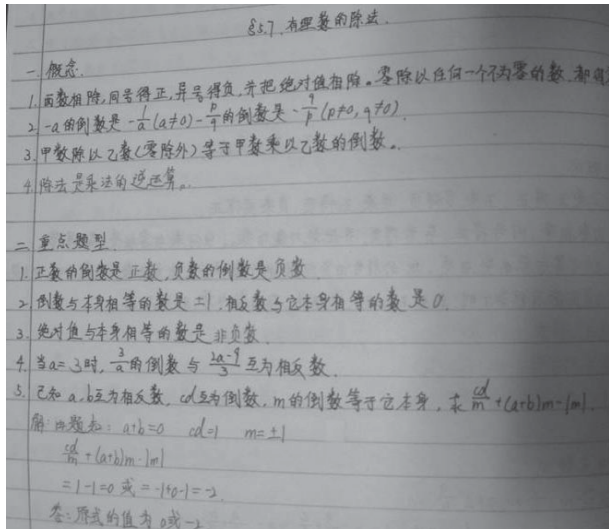 §5.7. 有理数的除法.
一. 概念.
1. 两数相除,同号得正,异号得负,并把绝对值相除。零除以任何一个不为零的数,都得
2. -a的倒数是 -1/a (a≠0) -p/q的倒数是 -q/p (p≠0, q≠0).
3. 甲数除以乙数(零除外)等于甲数乘以乙数的倒数。
4. 除法是乘法的逆运算。
二. 重点题型.
1. 正数的倒数是正数,负数的倒数是负数
2. 倒数与本身相等的数是±1,相反数与它本身相等的数是0.
3. 绝对值与本身相等的数是非负数.
4. 当a=3时, 3/a的倒数与 (2a-9)/3 互为相反数.
5. 已知a,b互为相反数, cd互为倒数, m的倒数等于它本身, 求 cd/m +(a+b)m-|m|.
解:由题知: a+b=0 cd=1 m=±1
cd/m +(a+b)m-|m|
=1-1=0 或 =-1+0-1=-2.
答:原式的值为0或-2